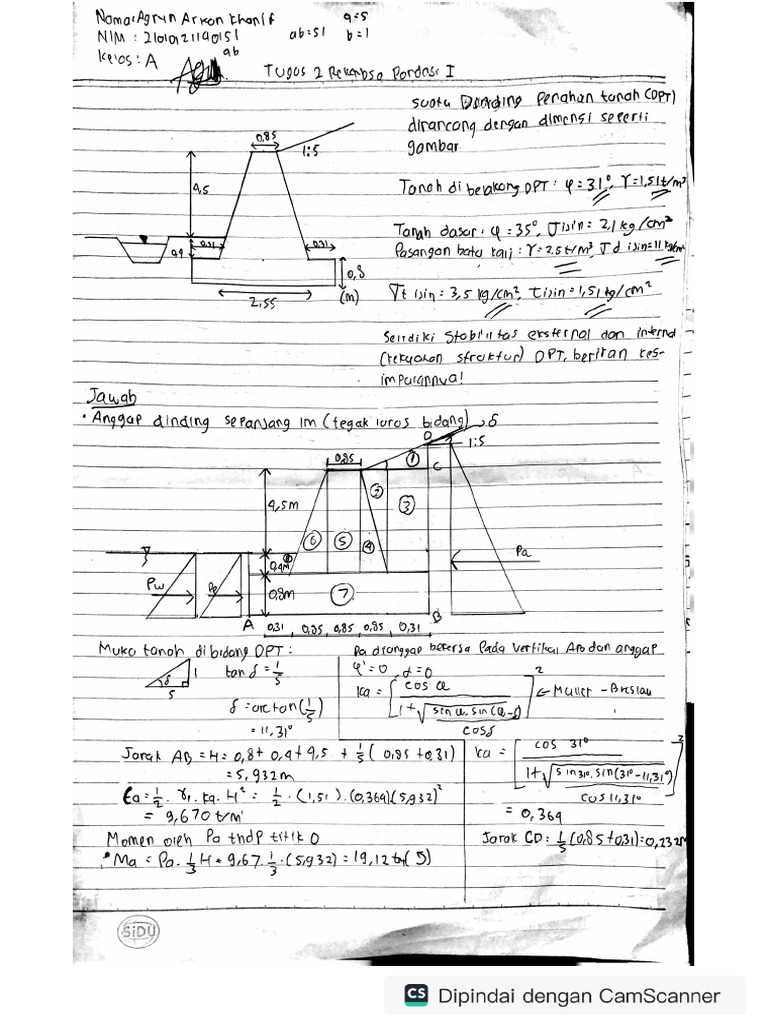 Nama: Agryn Arkan Khanif a=5
NIM : 21010121140151 ab=51 b=1
Kelas : A ab
Tugas 2 Rekayasa Pondasi I
suatu Dinding Penahan tanah (DPT)
dirancang dengan dimensi seperti
gambar
0,85
1:5
4,5
Tanah di belakang DPT : φ = 31°, γ = 1,51 t/m³
Tanah dasar : φ = 35°, σ isin = 2,1 kg/cm²
Pasangan batu kali : γ = 2,5 t/m³, σd isin = 11 kg/cm²
0,4
0,31
0,31
0,8
2,55
(m)
σt isin = 3,5 kg/cm², τ isin = 1,51 kg/cm²
Selidiki Stabilitas eksternal dan internal
(kekuatan struktur) DPT, berikan kes-
impulannya!
Jawab
• Anggap dinding sepanjang 1m (tegak lurus bidang)
δ
D
1:5
0,85
1
C
2
3
4,5m
6
5
4
8
0,4m
Pa
Pw
Pp
0,8m
7
A
B
0,31 0,85 0,85 0,85 0,31
Muka tanah dibidang DPT :
δ 1
5
tan δ = 1/5
δ = arc tan (1/5)
= 11,31°
Pa dianggap bekerja Pada vertikal AB dan anggap
φ' = 0 , α = 0
Ka = [cos φ / (1+√(sin φ. sin (φ-δ) / cos δ))]² ← Muller - Breslau
Jarak AB = H = 0,8 + 0,4 + 4,5 + 1/5 (0,85 + 0,31)
= 5,932m
Ka = [cos 31° / (1+√(sin 31°. sin (31° - 11,31°) / cos 11,31°))]²
= 0,364
Ea = 1/2 . γ1 . ka . H² = 1/2 . (1,51) . (0,364) (5,932)²
= 9,670 t/m'
Momen oleh Pa thdp titik O
Jarak CD : 1/5 (0,85 + 0,31) = 0,232m
• Ma = Pa . 1/3 H = 9,67 . 1/3 . (5,932) = 19,12 tm (5)
SiDU
CS Dipindai dengan CamScanner